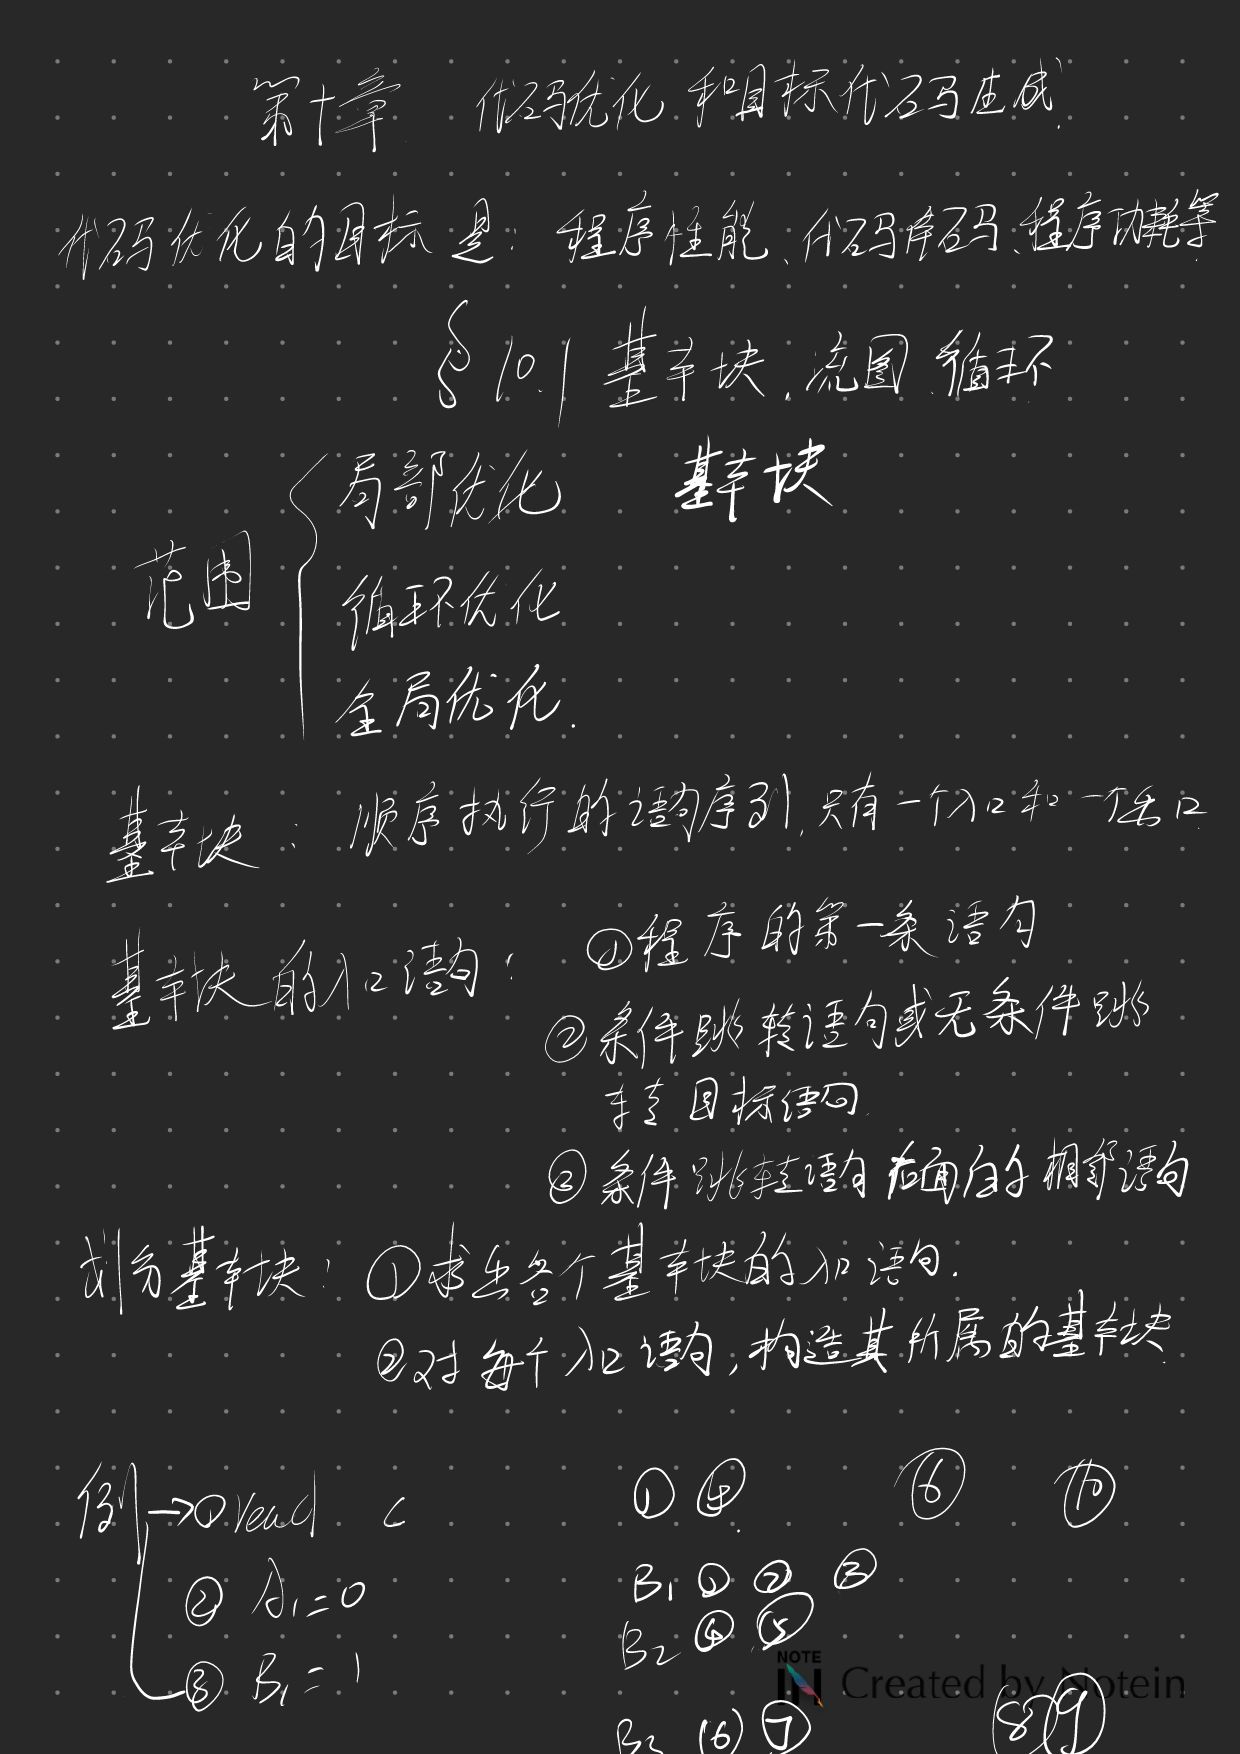 第十章 代码优化和目标代码生成
代码优化的目标是：程序性能、代码体码、程序功耗等
§10.1 基本块、流图、循环
范围
局部优化 基本块
循环优化
全局优化.
基本块：顺序执行的语句序列,只有一个入口和一个出口
基本块的入口语句：①程序的第一条语句
②条件跳转语句或无条件跳
转目标语句
③条件跳转语句后面的相邻语句
划分基本块：①求出各个基本块的入口语句.
②对每个入口语句,构造其所属的基本块
例 →①read C ① ④ ⑥ ⑩
② A1=0 B1 ① ② ③
③ B1=1 B2 ④ ⑤
NOTE IN Created by Notein
B3 (6) ⑦ ⑧ ⑨